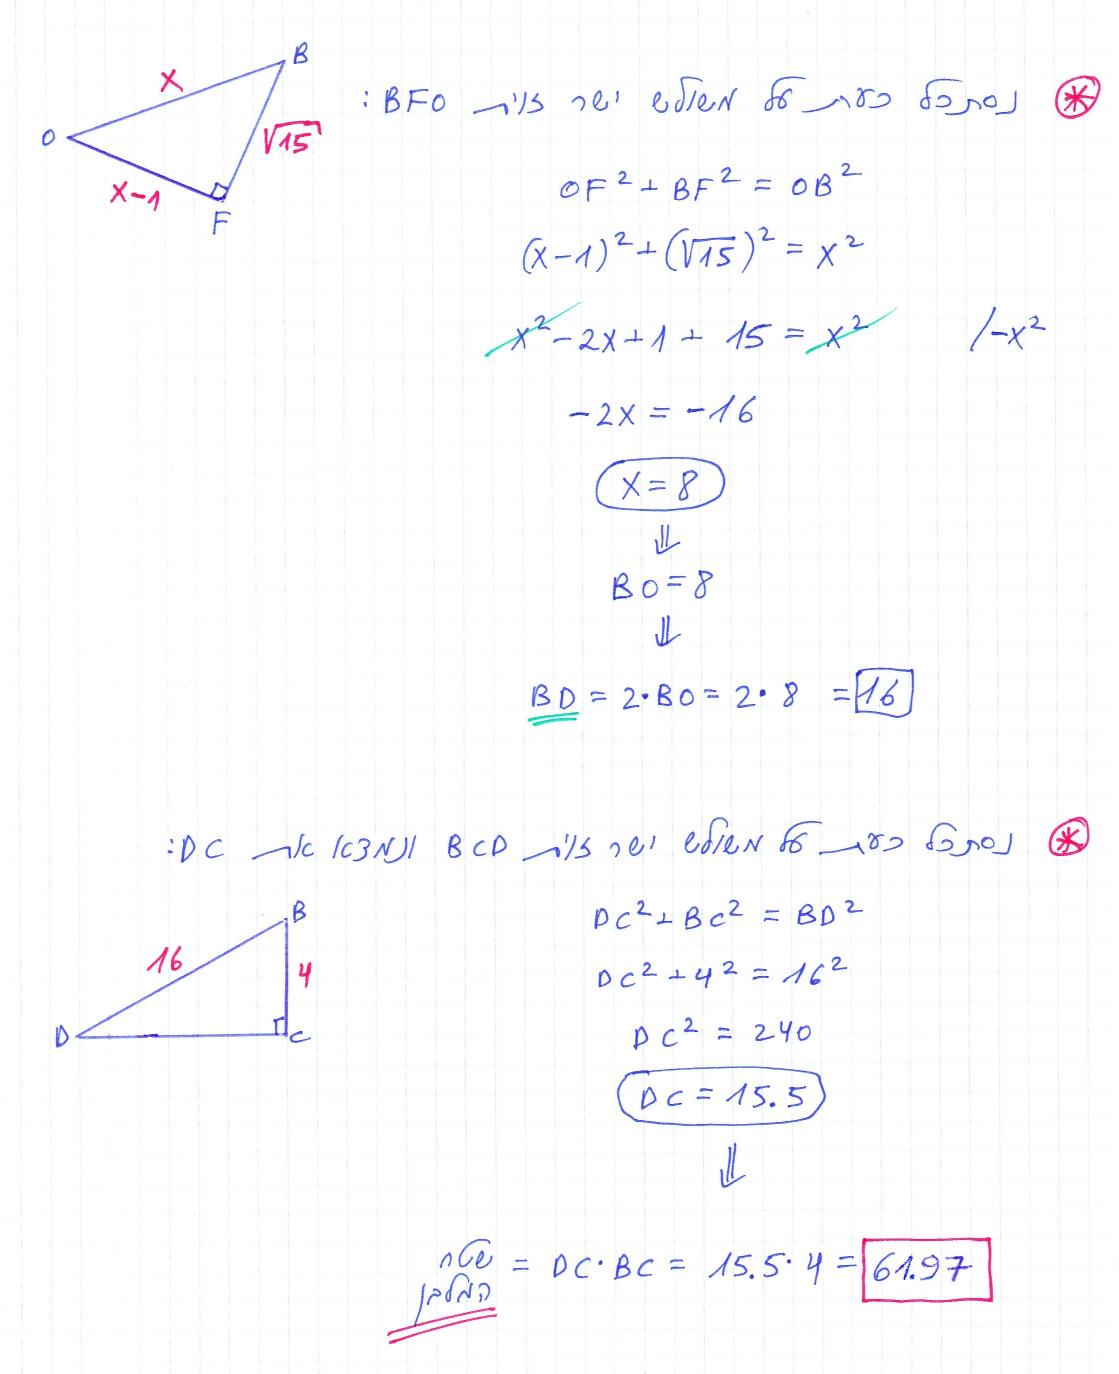 נסתכל כעת על משולש ישר זוית BFO :
B
X
O
√15
X-1
F
OF² + BF² = OB²
(x-1)² + (√15)² = x²
x² - 2x + 1 + 15 = x² /-x²
-2x = -16
x = 8
⇓
BO = 8
⇓
BD = 2·BO = 2·8 = 16
נסתכל כעת על משולש ישר זוית BCD ונמצא את DC :
B
16
4
D
C
DC² + BC² = BD²
DC² + 4² = 16²
DC² = 240
DC = 15.5
⇓
שטח המלבן = DC·BC = 15.5·4 = 61.97